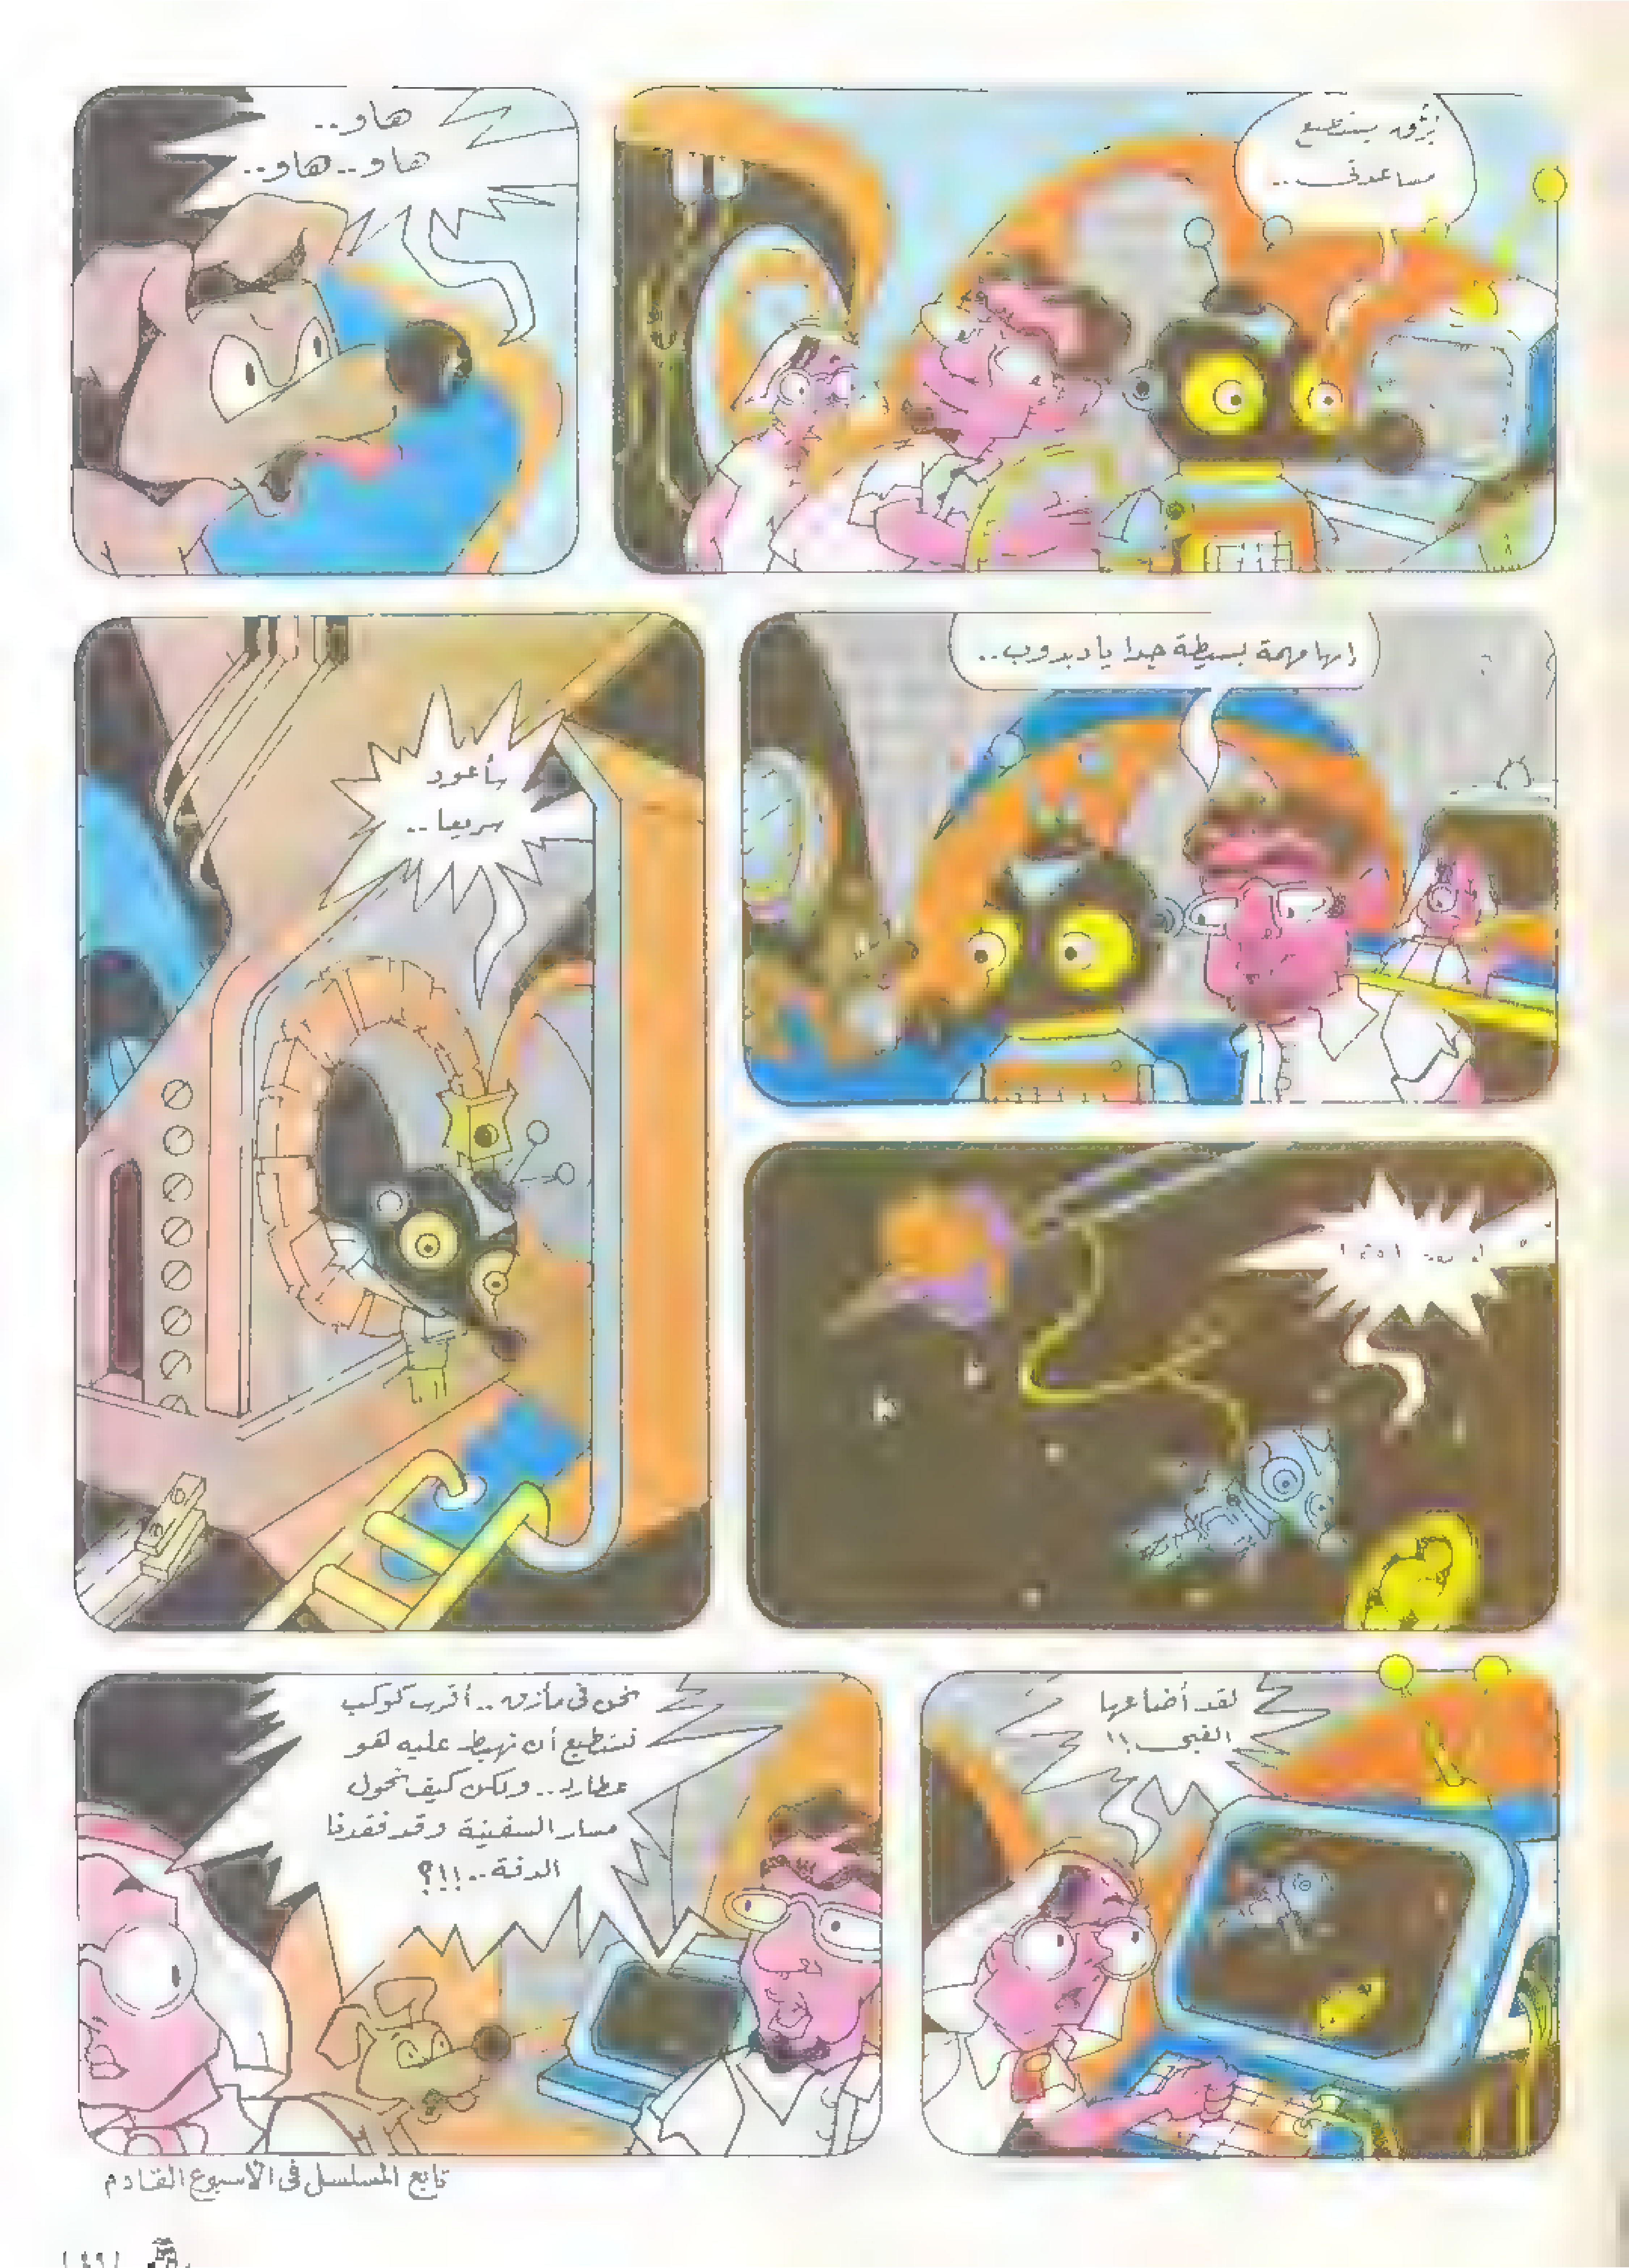 يستطيع
مساعدتى..
هاو..
هاو..هاو..
إنها مهمة بسيطة جدا يا دبدوب..
سأعود
سريعا..
لقد أضاعها
الغبى !!
نحن فى مأزق.. أقرب كوكب
نستطيع أن نهبط عليه هو
عطارد.. ولكن كيف نحول
مسار السفينة وقد فقدنا
الدفة..!!؟
تابع المسلسل فى الأسبوع القادم